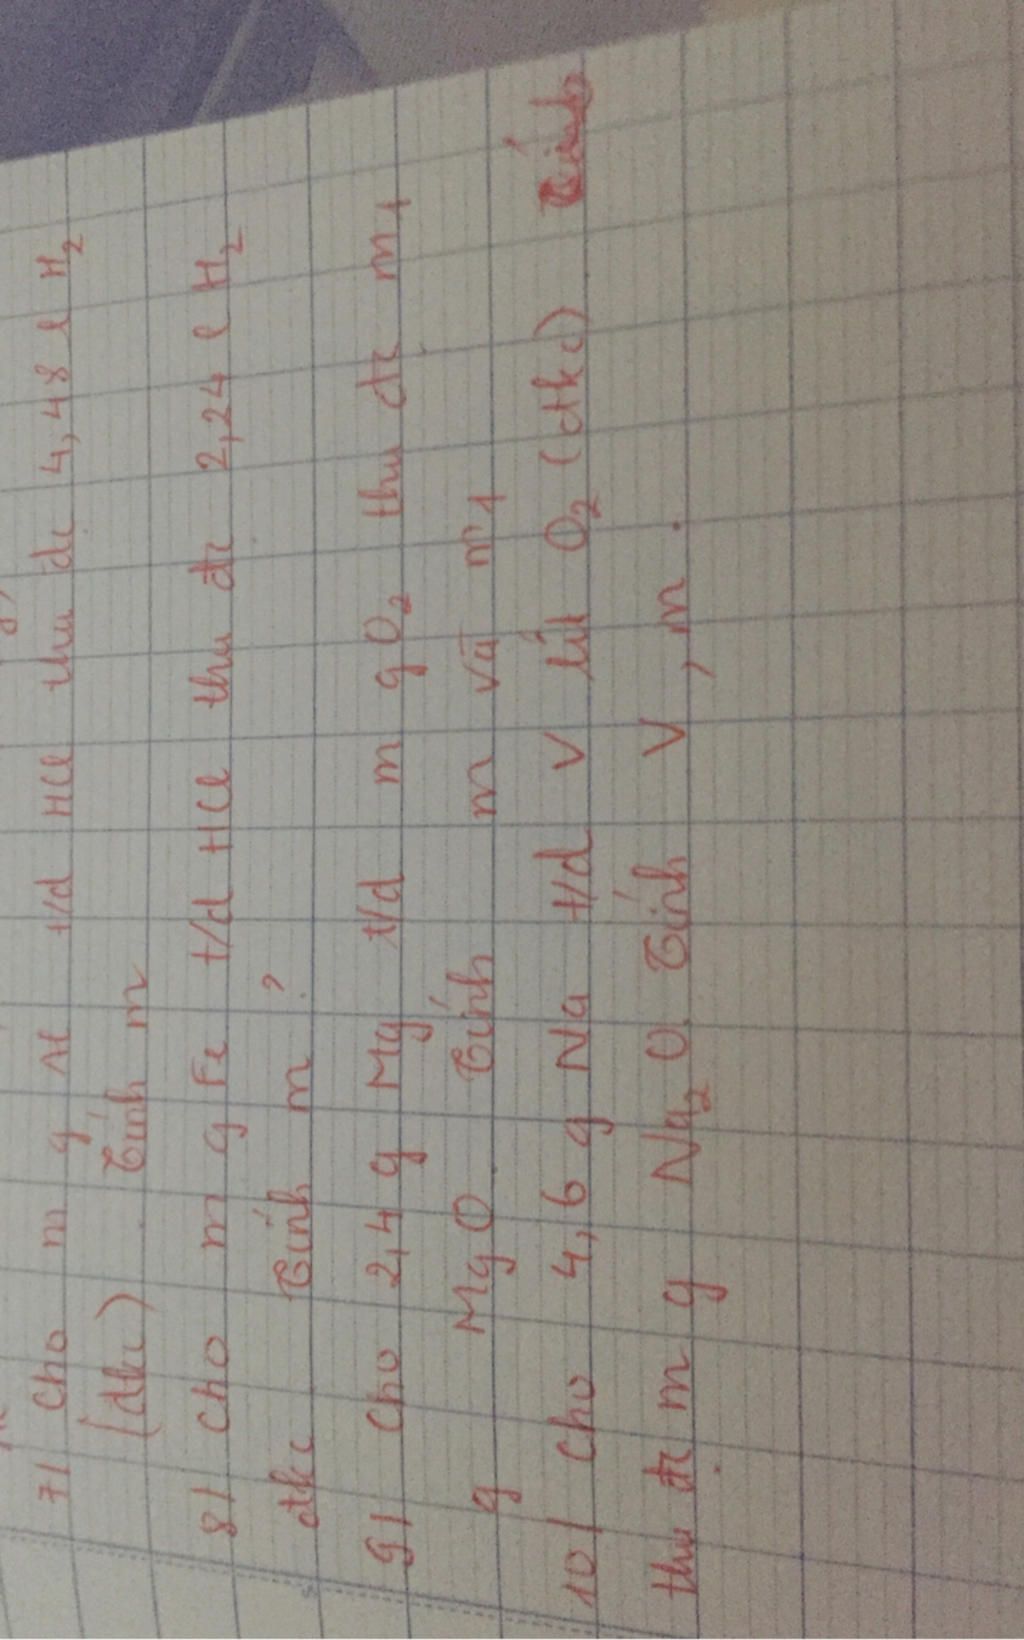 7/ Cho m g Al t/d HCl thu đc 4,48 l H2
(đkc). Tính m
8/ Cho m g Fe t/d HCl thu đc 2,24 l H2
đkc Tính m?
9/ Cho 2,4 g Mg t/d m g O2 thu đc m1
g MgO. Tính m và m1
10/ Cho 4,6 g Na t/d V lít O2 (đkc) Tính
thu đc m g Na2O. Tính V, m.